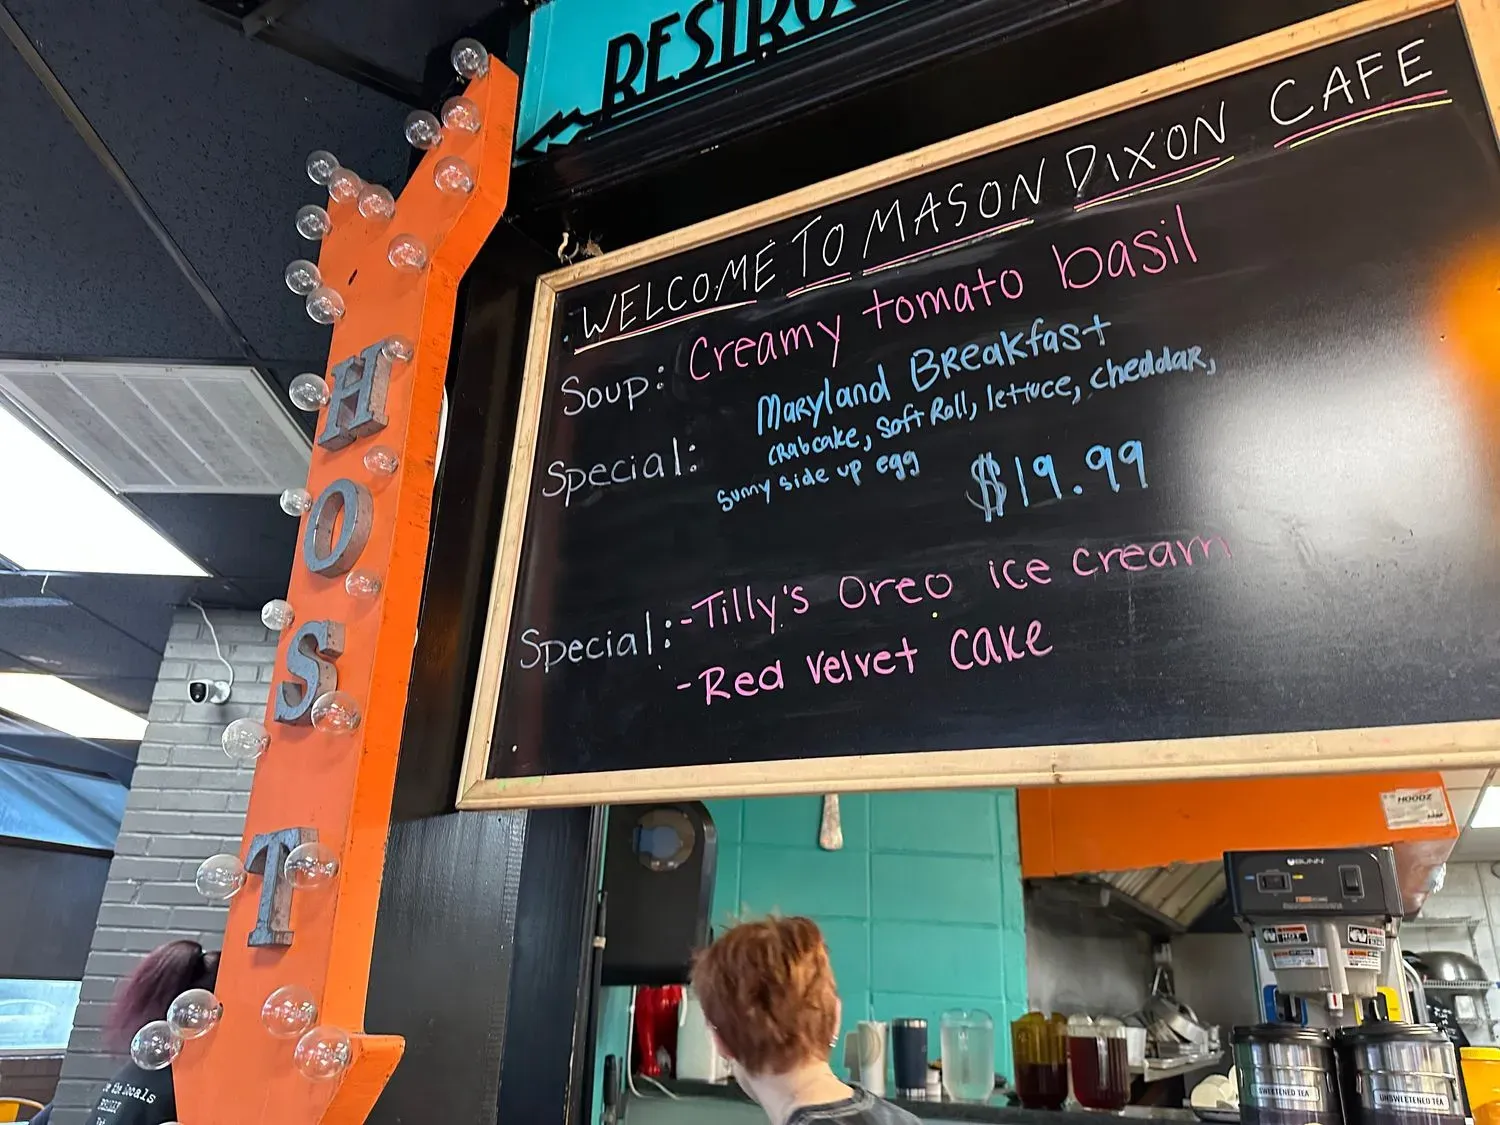 RESTRO
WELCOME TO MASON DIXON CAFE
Soup: Creamy tomato basil
Special: Maryland Breakfast
crabcake, soft Roll, lettuce, cheddar,
sunny side up egg
$19.99
Special: -Tilly's Oreo ice cream
-Red velvet cake
HOST
HOODZ
BUNN
HOT
SWEETENED TEA
UNSWEETENED TEA
the locals